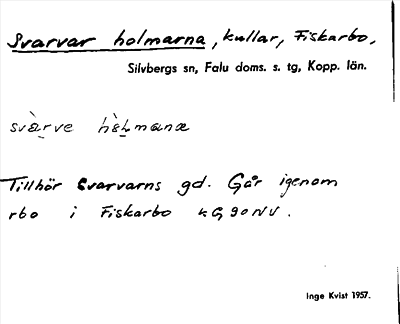 Svarvar holmarna, kullar, Fiskarbo,
Silvbergs sn, Falu doms. s. tg, Kopp. län.
svàrve hòlmanæ
Tillhör Svarvarns gd. Går igenom
rbo i Fiskarbo
Inge Kvist 1957.